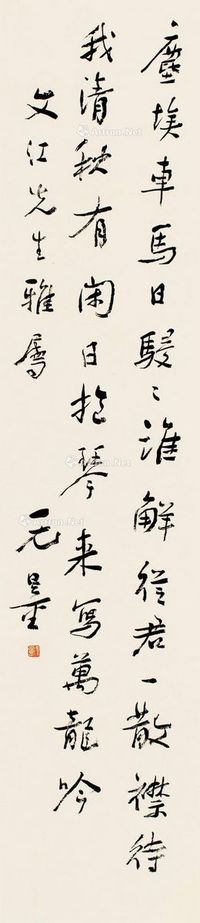 塵埃車馬日駸〻誰解從君一散襟待
我清秋有閑日抱琴来寫萬龍吟
文江先生雅屬
无量